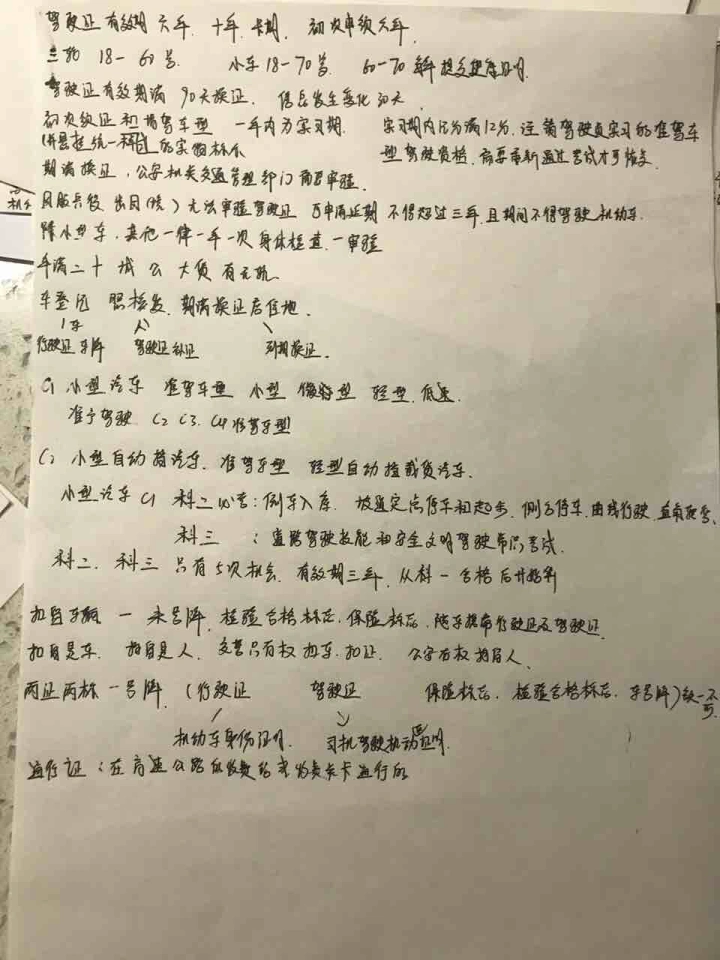 驾驶证有效期 六年. 十年. 长期. 初次申领六年.
三轮 18-60岁. 小车18-70岁. 60-70 每年提交体检证明.
驾驶证有效期满 90天换证. 信息发生变化 30天.
初次领证和增驾车型 一年内为实习期. 实习期内记分满12分, 注销驾驶员实习的准驾车
(悬挂统一 的实习标志 型驾驶资格. 需要重新通过考试才可恢复.
期满换证, 公安机关交通管理部门 审验.
因服兵役 出国(境) 无法审验驾驶证 可申请延期 不得超过三年. 且期间不得驾驶机动车.
除小型车, 其他一律一年一次 身体检查. 一审验
年满二十 城 公 大货 有无轨
车登记 照核发. 期满换证居住地.
车 人
行驶证 车牌 驾驶证 证 到期换证.
C1 小型汽车 准驾车型 小型 微型 轻型. 低速.
准予驾驶 C2 C3. C4 准驾车型
C2 小型自动挡汽车. 准驾车型 轻型自动挡载货汽车.
小型汽车 C1 科二必考: 倒车入库. 坡道定点停车和起步. 侧方停车. 曲线行驶. 直角转弯、
科三 : 道路驾驶技能和安全文明驾驶常识考试.
科二. 科三 只有5次机会. 有效期三年. 从科一合格后开始
扣留车辆 — 未号牌. 检验合格标志. 保险标志. 随车携带行驶证及驾驶证.
扣留是车. 拘留是人. 交警只有权扣车. 扣证. 公安有权拘留人.
两证两标一号牌. (行驶证 驾驶证 保险标志. 检验合格标志. 车号牌) 缺一不可.
机动车身份证明. 司机驾驶机动车证明.
通行证 : 在高速公路 收费 卡通行的